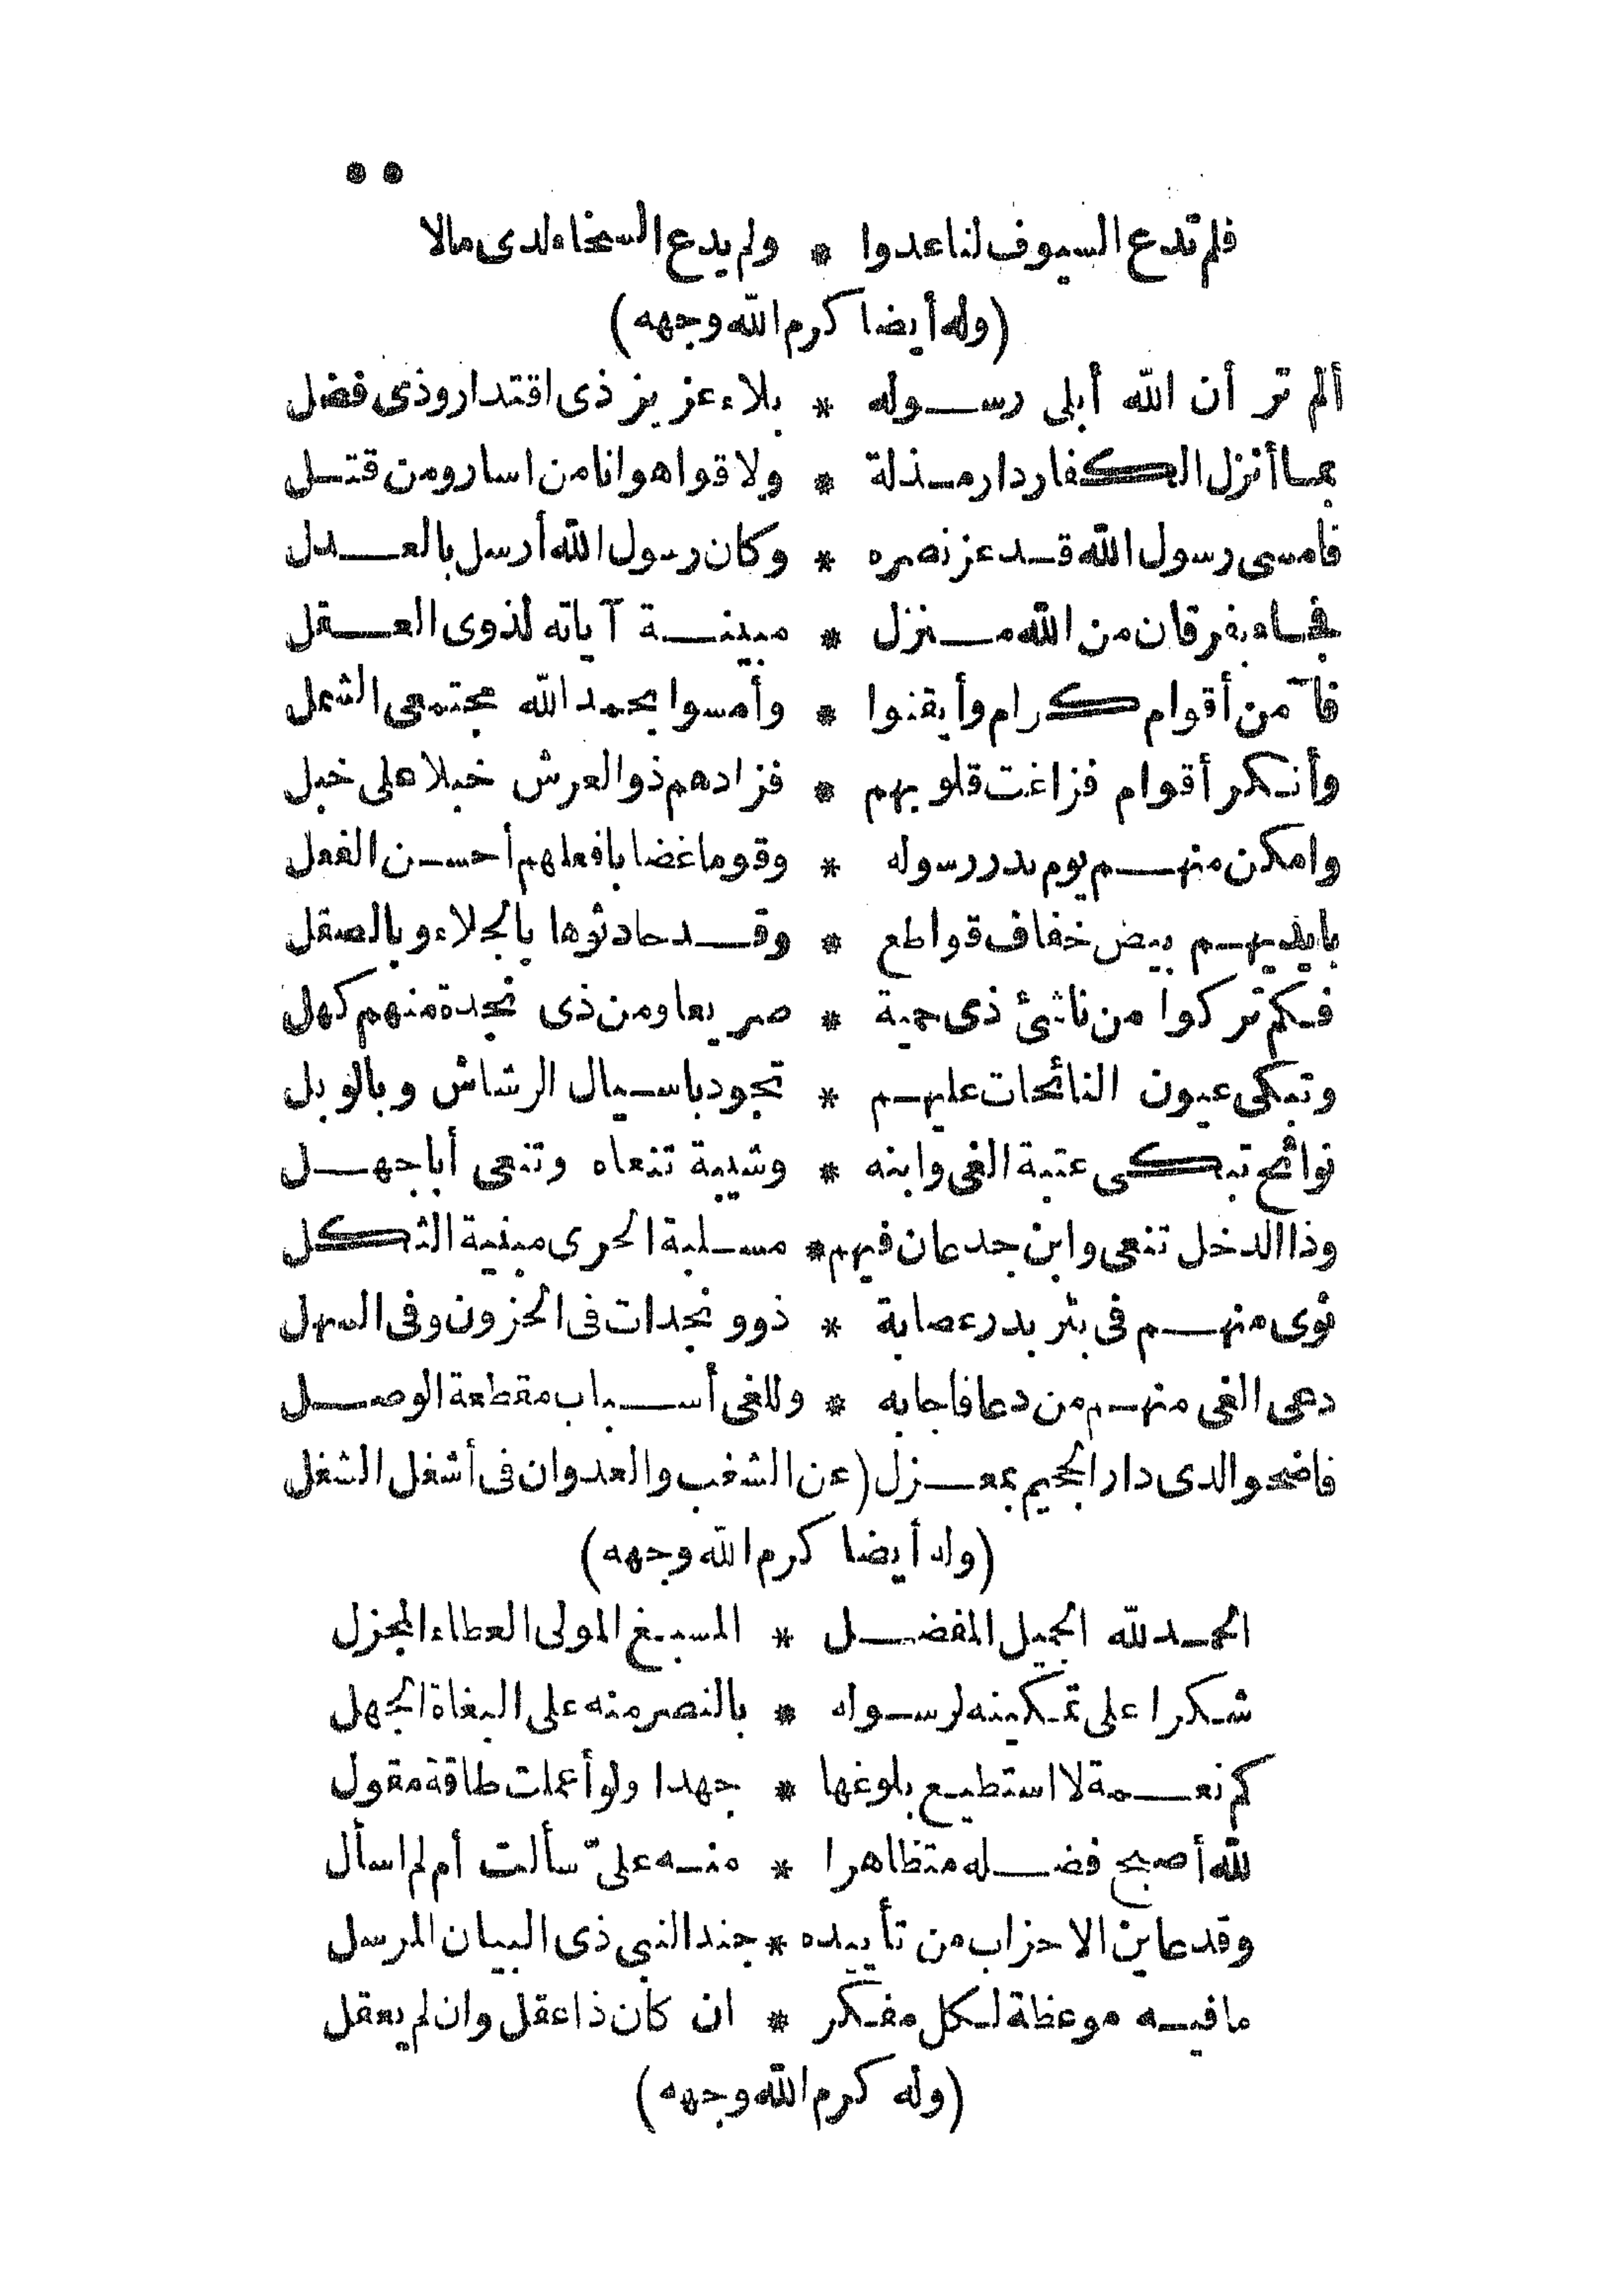 ٥٥
فلم تدع السيوف لنا عدوا * ولم يدع السخاء لدى مالا
(وله أيضا كرم الله وجهه)
ألم تر أن الله أبلى رسوله * بلاء عزيز ذى اقتدار وذى فضل
بما أنزل الكفار دار مذلة * ولاقوا هوانا من اسار ومن قتل
فامسى رسول الله قد عز نصره * وكان رسول الله أرسل بالعدل
فجاء بفرقان من الله منزل * مبينة آياته لذوى العقل
فآمن أقوام كرام وأيقنوا * وأمسوا بحمد الله مجتمعى الشمل
وأنكر أقوام فزاغت قلوبهم * فزادهم ذو العرش خبلا على خبل
وامكن منهم يوم بدر رسوله * وقوما غضابا فعلهم أحسن الفعل
بايديهم بيض خفاف قواطع * وقد حادثوها بالجلاء وبالصقل
فكم تركوا من ناشئ ذى حمية * صريعا ومن ذى نجدة منهم كهل
وتبكى عيون النائحات عليهم * تجود باسبال الرشاش وبالوبل
نوائح تبكى عتبة الغى وابنه * وشيبة تنعاه وتنعى أبا جهل
وذا الدخل تنعى وابن جدعان فيهم * مسلبة الحرى مبنية الثكل
ثوى منهم فى بئر بدر عصابة * ذوو نجدات فى الحزون وفى السهل
دعى الغى منهم من دعا فاجابه * وللغى أسباب مقطعة الوصل
فاضحوا لدى دار الجحيم بمعزل (عن الشغب والعدوان فى أشغل الشغل
(وله أيضا كرم الله وجهه)
الحمد لله الجميل المفضل * المسبغ المولى العطاء المجزل
شكرا على تمكينه لرسوله * بالنصر منه على البغاة الجهل
كم نعمة لا استطيع بلوغها * جهدا ولو أعملت طاقة مقول
لله أصبح فضله متظاهرا * منه علىّ سألت أم لم اسأل
وقد عاين الاحزاب من تأييده * جند النبى ذى البيان المرسل
ما فيه موعظة لكل مفكر * ان كان ذا عقل وان لم يعقل
(وله كرم الله وجهه)